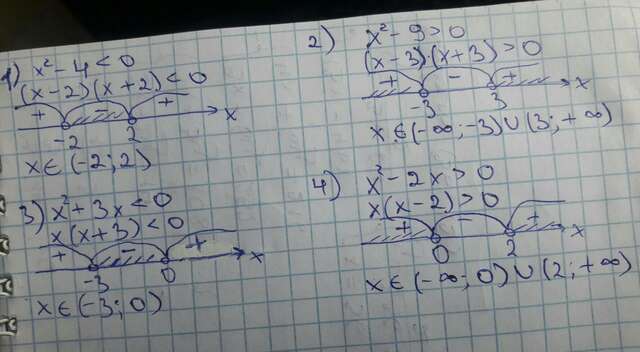 1) x² - 4 < 0
(x - 2)(x + 2) < 0
+ - + x
-2 2
x ∈ (-2; 2)
2) x² - 9 > 0
(x - 3)(x + 3) > 0
+ - + x
-3 3
x ∈ (-∞; -3) ∪ (3; +∞)
3) x² + 3x < 0
x(x + 3) < 0
+ - + x
-3 0
x ∈ (-3; 0)
4) x² - 2x > 0
x(x - 2) > 0
+ - + x
0 2
x ∈ (-∞; 0) ∪ (2; +∞)